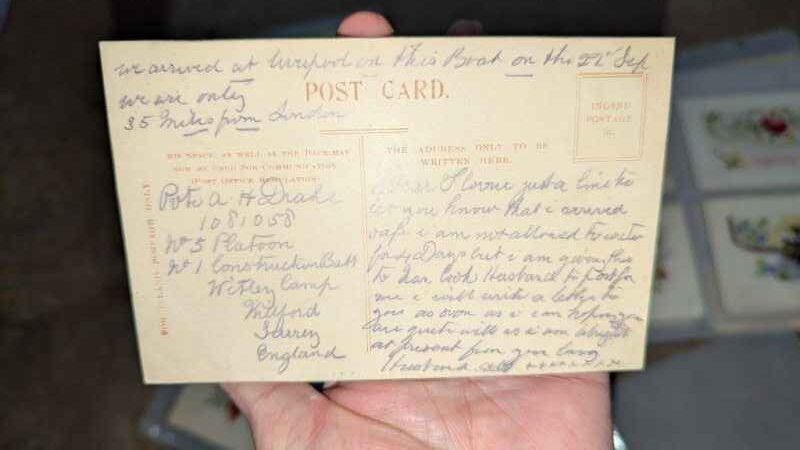 we arrived at Liverpool on this Boat on the 22nd Sep
we are only
35 Miles from London
POST CARD.
INLAND
POSTAGE
½D.
THIS SPACE, AS WELL AS THE BACK, MAY
NOW BE USED FOR COMMUNICATION
(POST OFFICE REGULATION)
THE ADDRESS ONLY TO BE
WRITTEN HERE.
Pte A H Drake
1081058
No 5 Platoon
No 1 Construction Batt
Witley Camp
Milford
Surrey
England
Dear Florence just a line to
let you know that i arrived
safe i am not allowed to write
for Days but i am given this
to Husband to Post for
me i will write a letter to
you as soon as i can hoping you
are quite well as i am alright
at present from your loving
Husband xxxxxxx